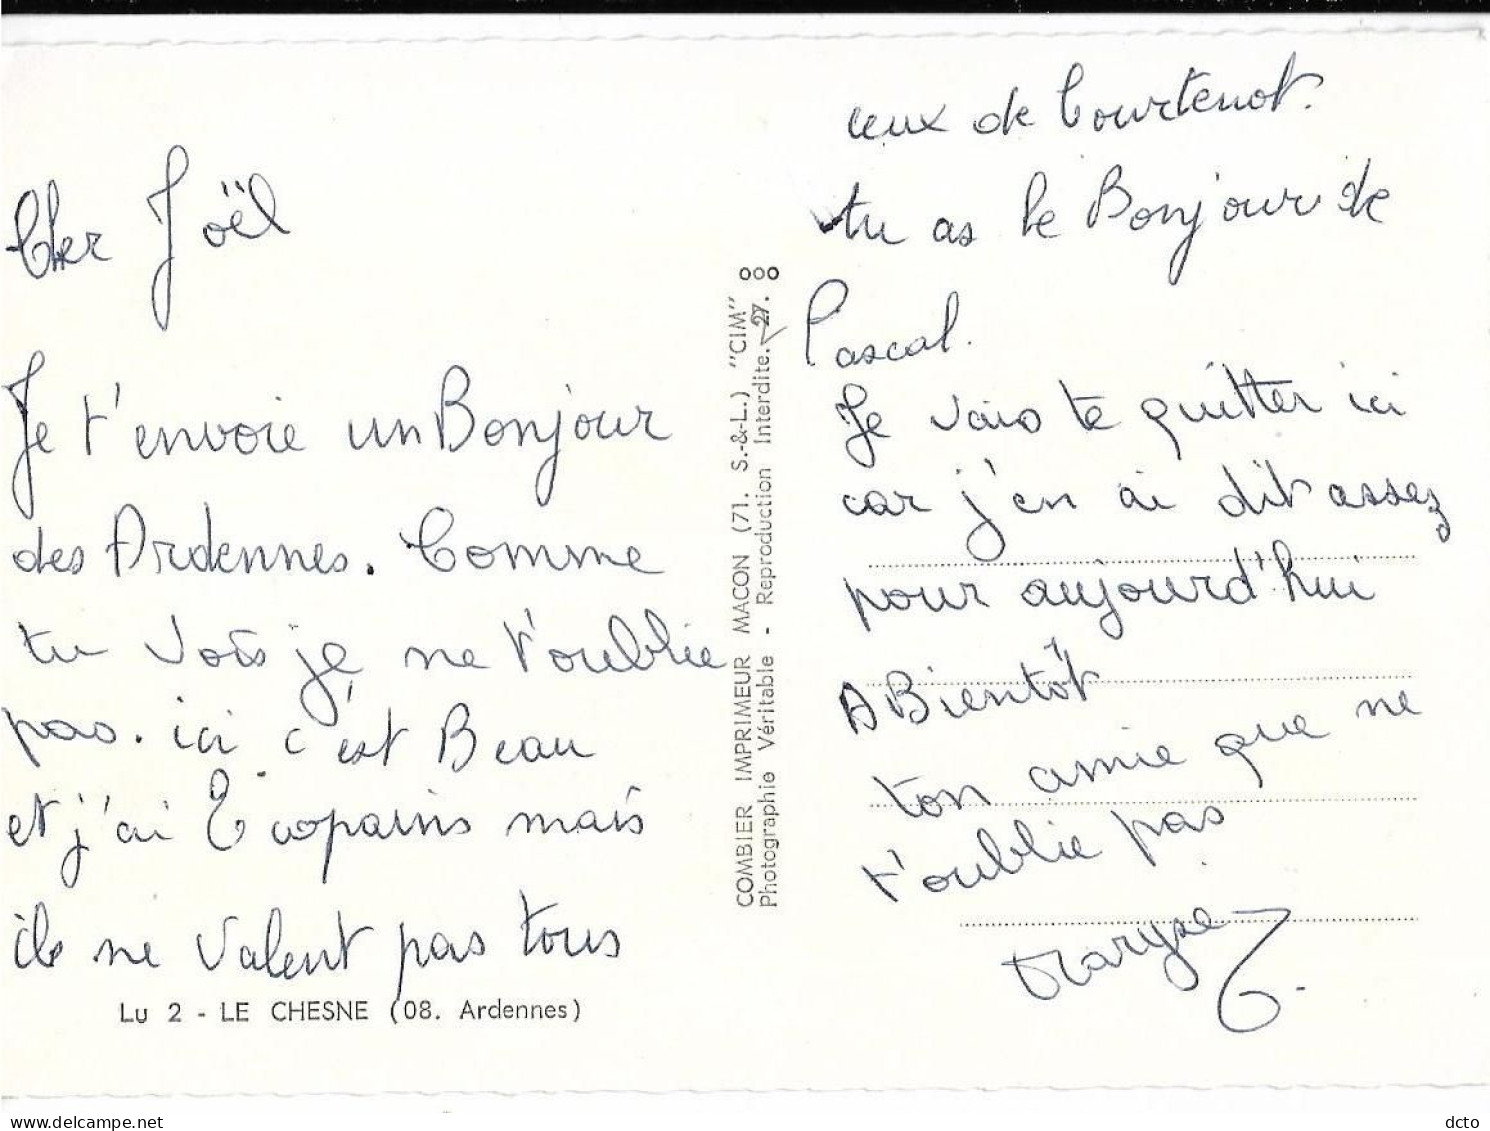 Cher Joël
Je t'envoie un Bonjour
des Ardennes. Comme
tu vois je ne t'oublie
pas. ici c'est Beau
et j'ai 2 copains mais
ils ne valent pas tous
Lu 2 - LE CHESNE (08. Ardennes)
COMBIER IMPRIMEUR MACON (71. S.-&-L.) "CIM"
Photographie Véritable - Reproduction Interdite.
ceux de Courtenot.
tu as le Bonjour de
Pascal.
Je vais te quitter ici
car j'en ai dit assez
pour aujourd'hui
A Bientôt
ton amie que ne
t'oublie pas
Maryse
delcampe.net
dcto